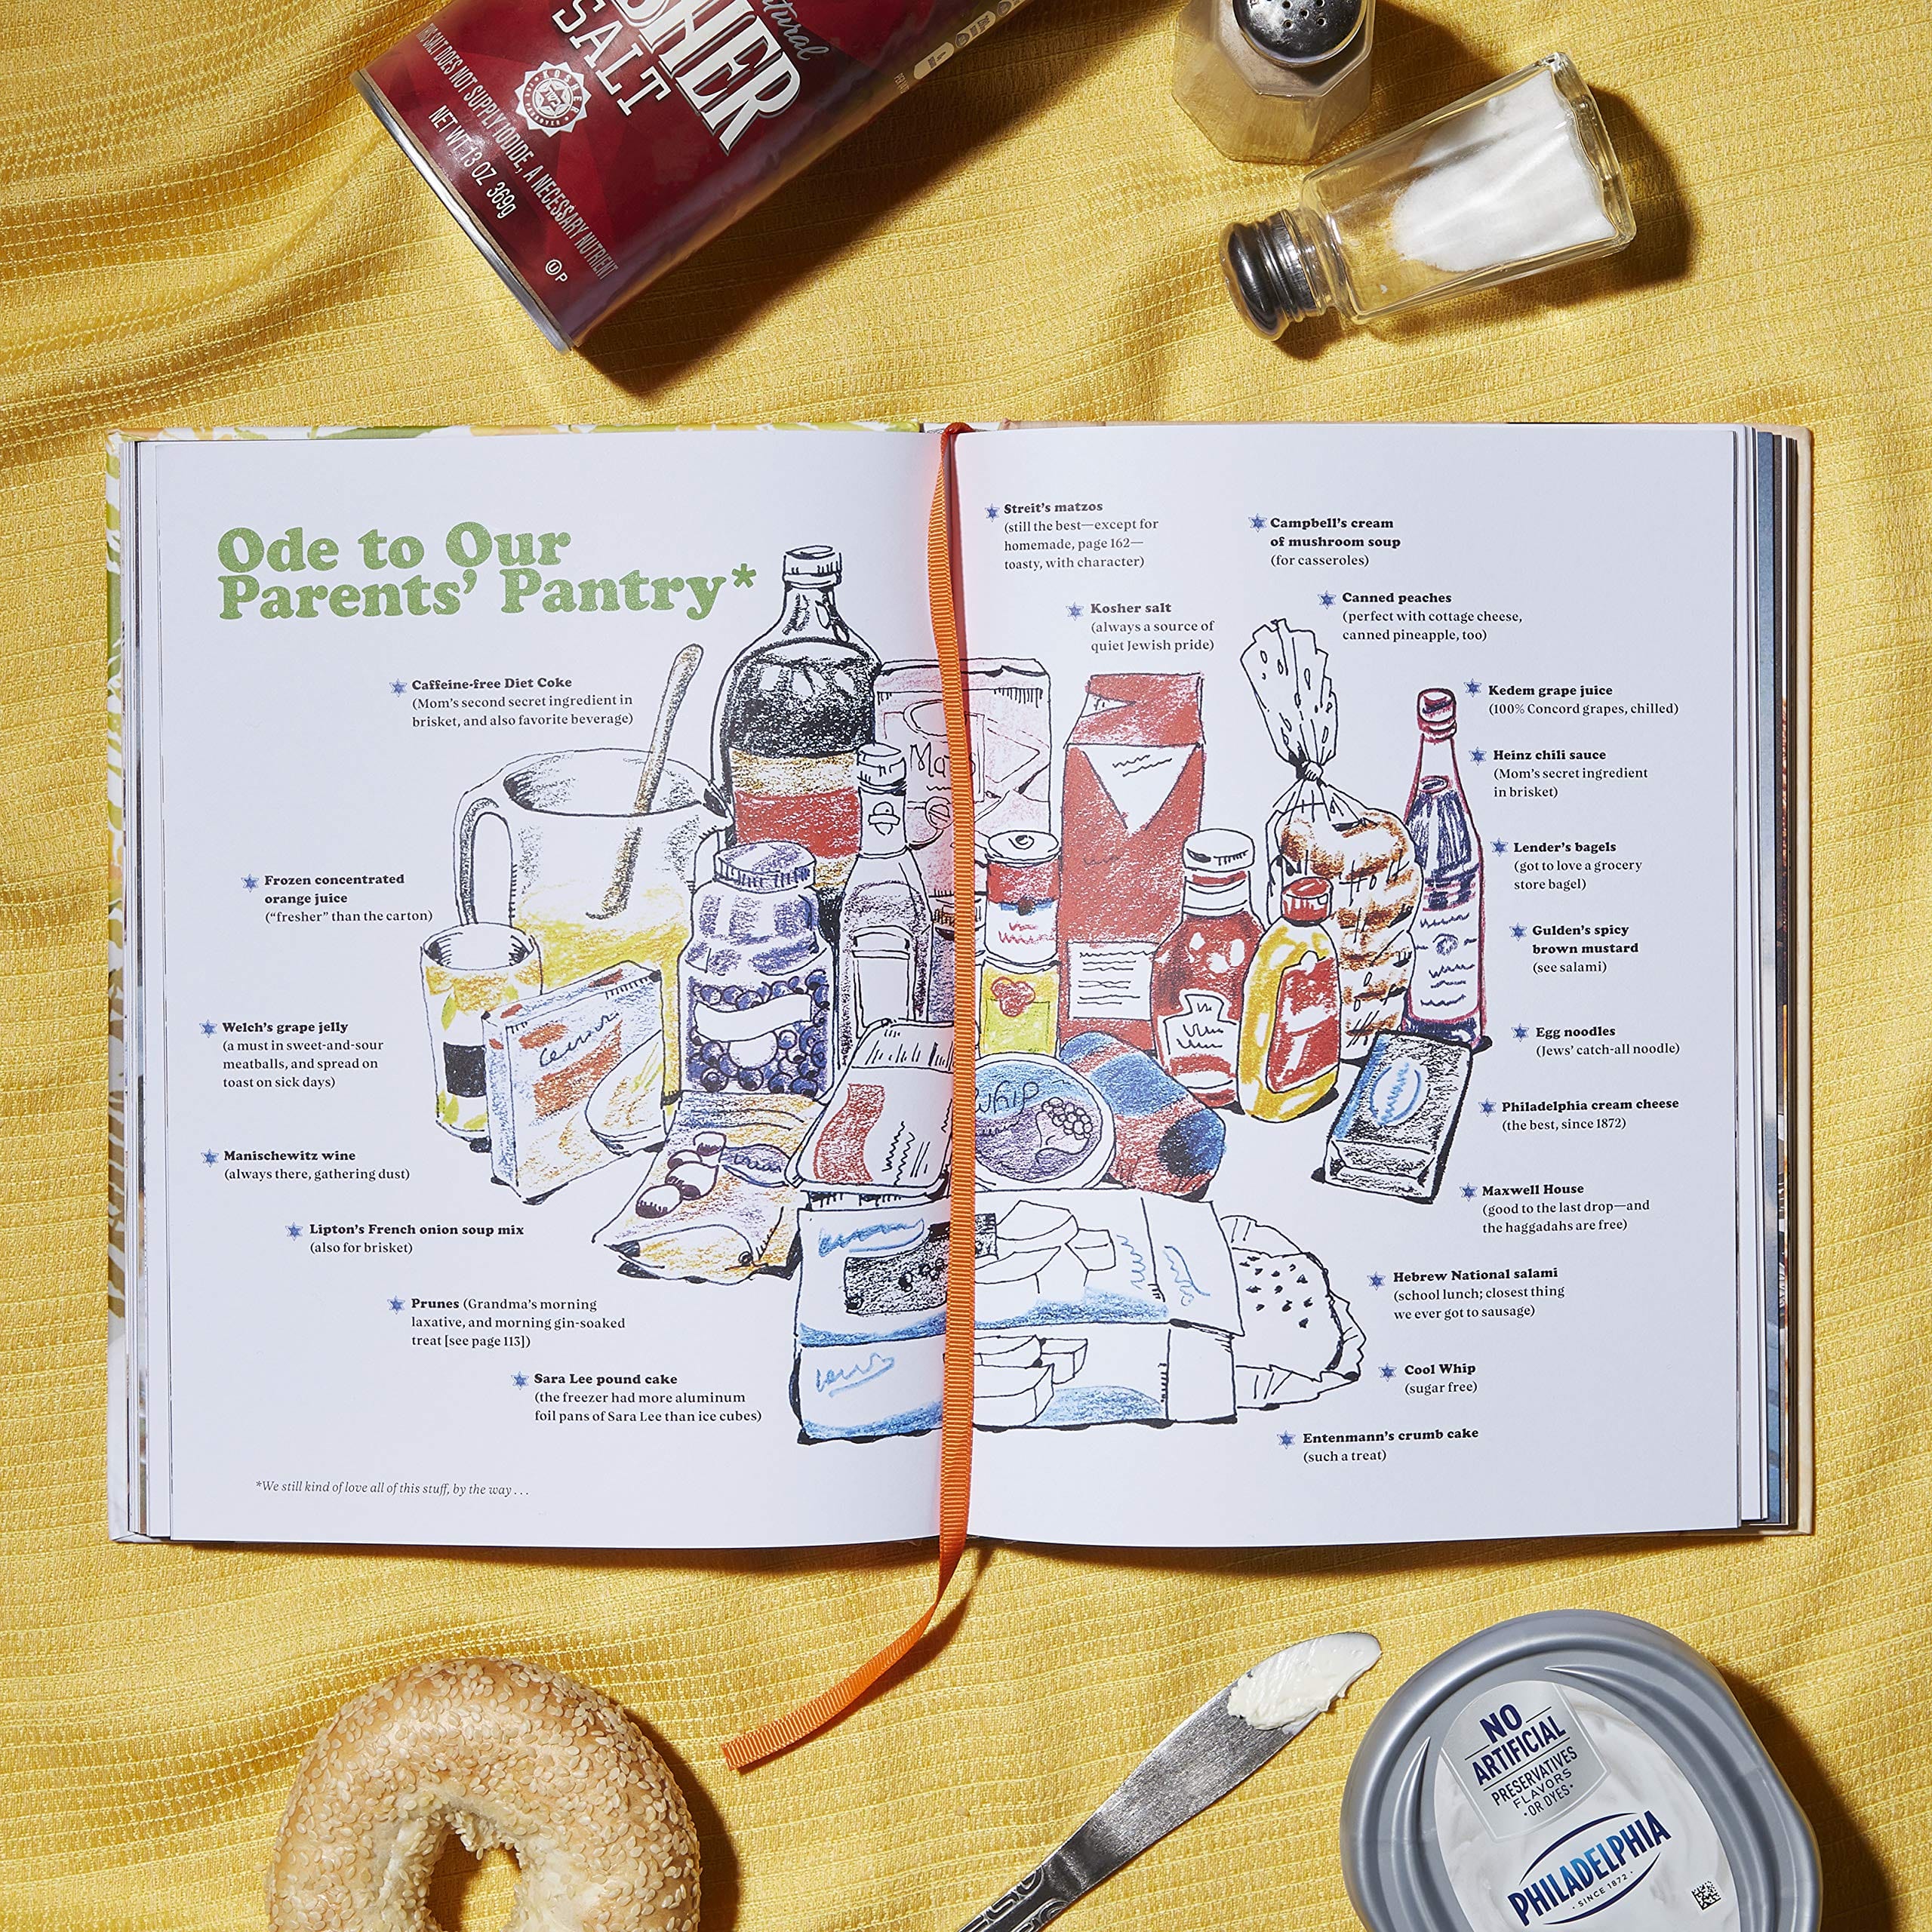 Natural
KOSHER
SALT
THIS SALT DOES NOT SUPPLY IODIDE, A NECESSARY NUTRIENT
KOSHER
NET WT 13 OZ 369g
Ⓤ P
Ode to Our
Parents’ Pantry*
Caffeine-free Diet Coke
(Mom’s second secret ingredient in
brisket, and also favorite beverage)
Frozen concentrated
orange juice
(“fresher” than the carton)
Welch’s grape jelly
(a must in sweet-and-sour
meatballs, and spread on
toast on sick days)
Manischewitz wine
(always there, gathering dust)
Lipton’s French onion soup mix
(also for brisket)
Prunes (Grandma’s morning
laxative, and morning gin-soaked
treat [see page 113])
Sara Lee pound cake
(the freezer had more aluminum
foil pans of Sara Lee than ice cubes)
*We still kind of love all of this stuff, by the way . . .
Whip
Streit’s matzos
(still the best—except for
homemade, page 162—
toasty, with character)
Campbell’s cream
of mushroom soup
(for casseroles)
Kosher salt
(always a source of
quiet Jewish pride)
Canned peaches
(perfect with cottage cheese,
canned pineapple, too)
Kedem grape juice
(100% Concord grapes, chilled)
Heinz chili sauce
(Mom’s secret ingredient
in brisket)
Lender’s bagels
(got to love a grocery
store bagel)
Gulden’s spicy
brown mustard
(see salami)
Egg noodles
(Jews’ catch-all noodle)
Philadelphia cream cheese
(the best, since 1872)
Maxwell House
(good to the last drop—and
the haggadahs are free)
Hebrew National salami
(school lunch; closest thing
we ever got to sausage)
Cool Whip
(sugar free)
Entenmann’s crumb cake
(such a treat)
NO
ARTIFICIAL
PRESERVATIVES
FLAVORS
•OR DYES•
PHILADELPHIA
• SINCE 1872 •